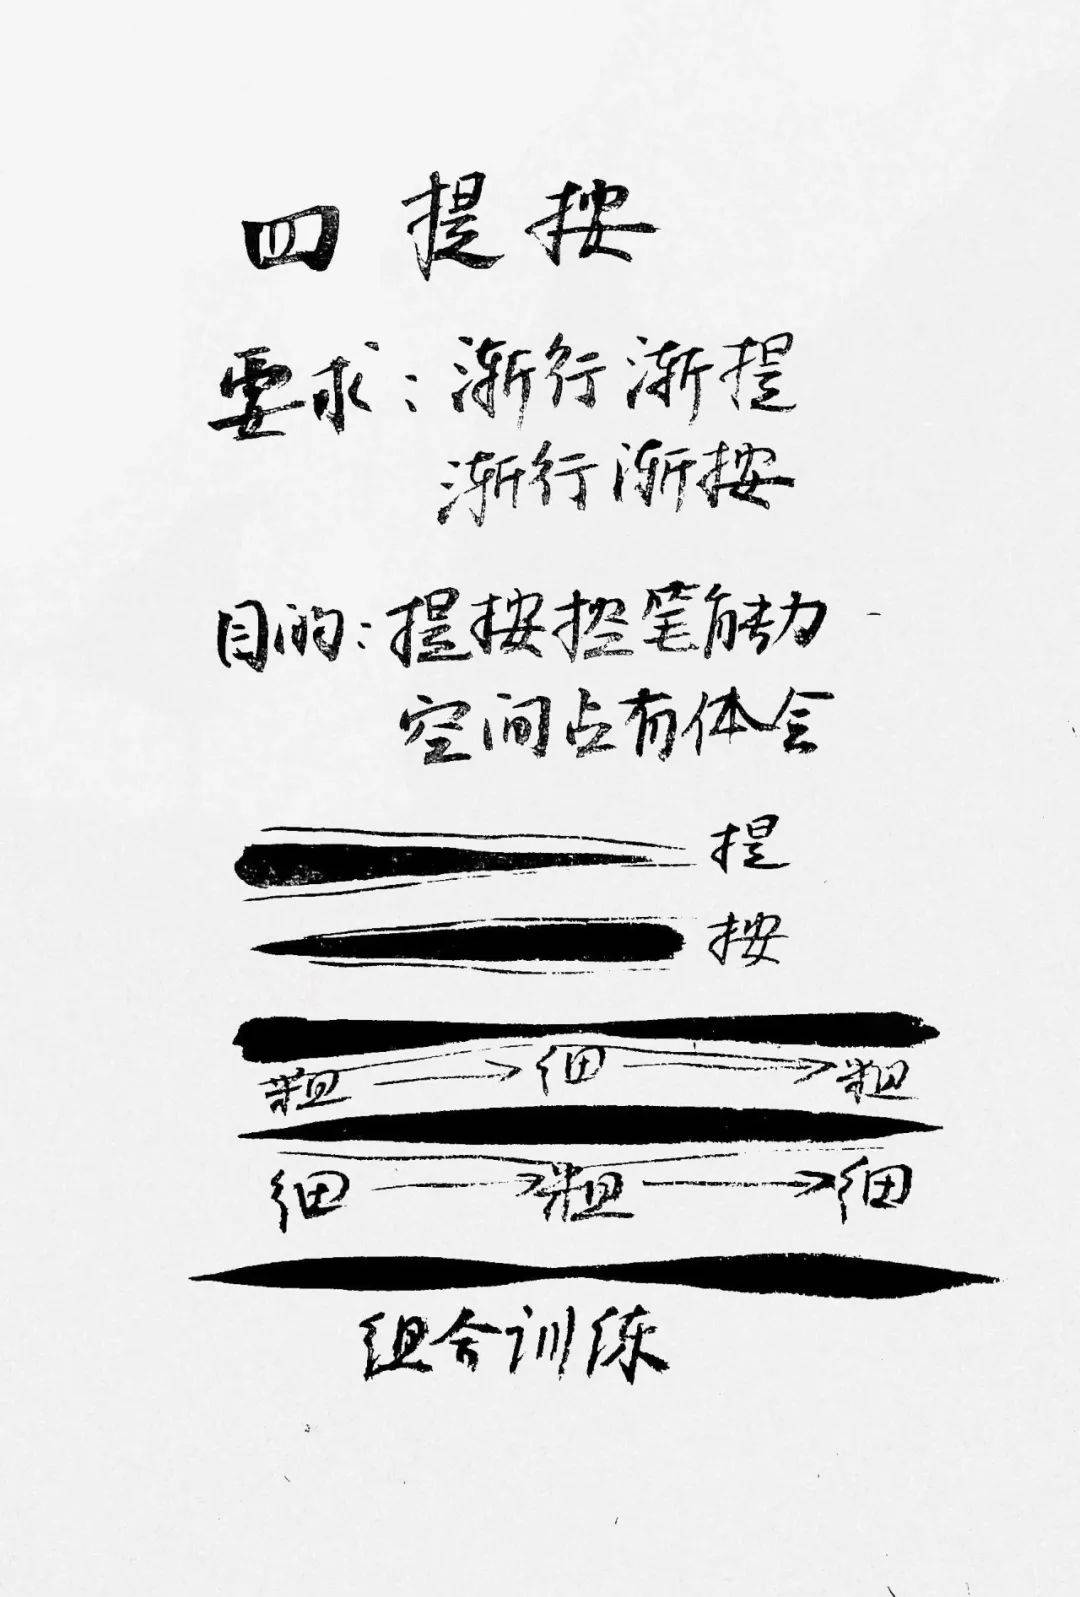 四 提 按
要求:渐行渐提
渐行渐按
目的:提按控笔能力
空间占有体会
提
按
粗 → 细 → 粗
细 → 粗 → 细
组合训练